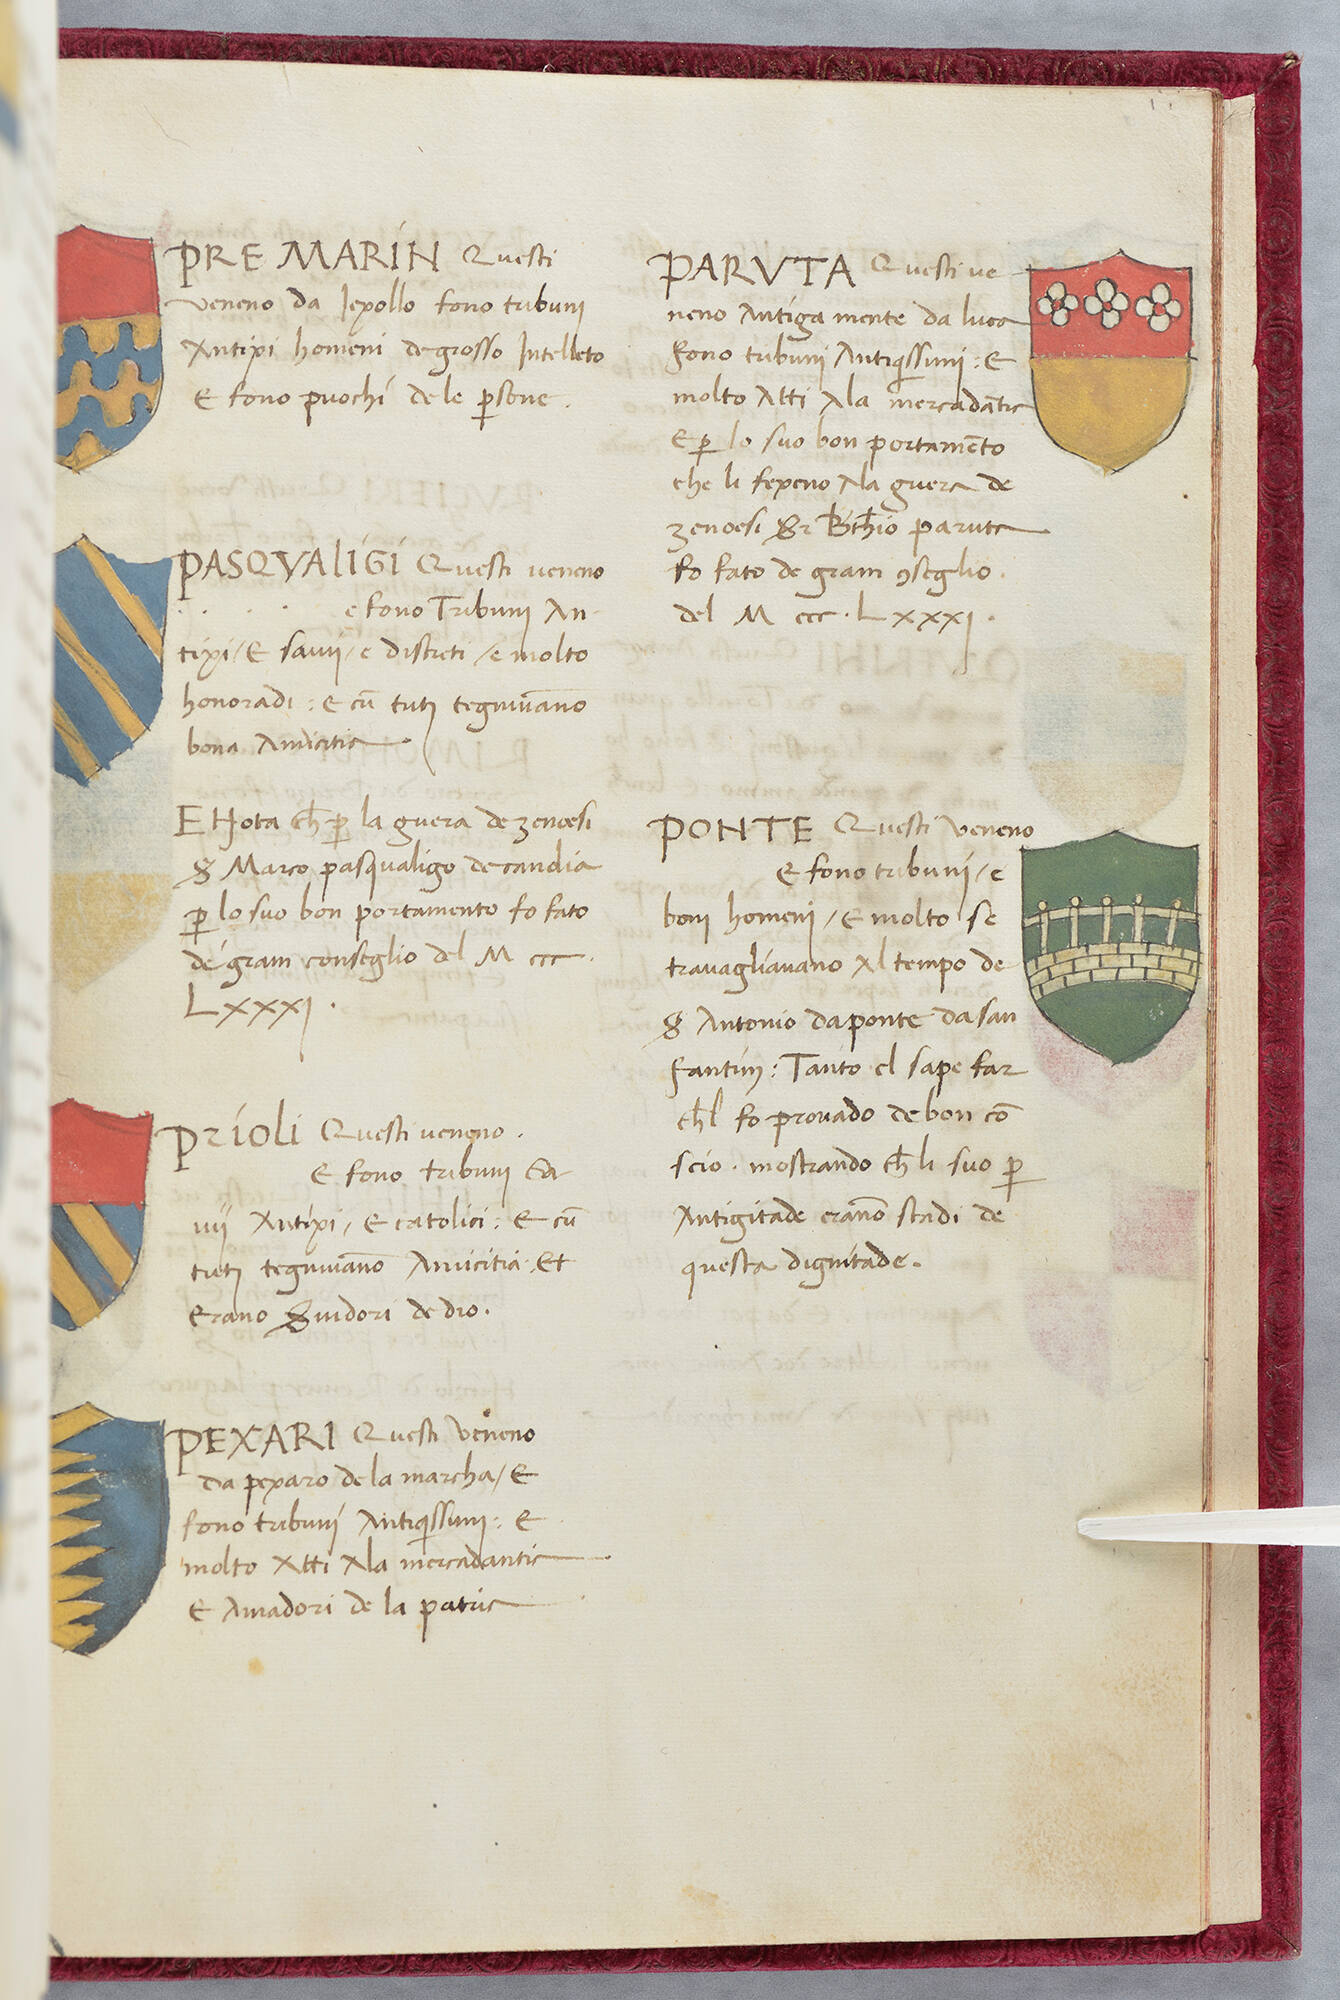 PRE MARIN Questi
veneno da Jexollo fono tribuni
Antixi homeni de grosso Intelleto
E fono puochi de le p̱sone.
PASQVALIGI Questi veneno
. . . . e fono Tribunj An
tixi / E savij / e discreti / e molto
honoradi : e cū tutj tegnivāno
bona Amicitia
E Nota ch̄ p̱ la guera de zenoesi
S Marco pasqualigo de candia
p̱ lo suo bon portamento fo fato
de gram conseglio del M ccc.
LXXXJ.
PRIOLI Questi veneno.
E fono tribunj Sa
vij Antixi / E catolici : E cū
tutj tegnivāno Amicitia Et
Erano Svidori de dio.
PEXARI Questi veneno
da pexaro de la marcha / E
fono tribunj Antiq̱issimj : E
molto Atti Ala mercadantia
E Amadori de la patria
PARVTA Questi ve
neno Antiga mente da luca
fono tribunj Antiq̱issimj : E
molto Atti Ala mercadātia
E p̱ lo suo bon portamēto
che li fexeno Ala guera de
zenoesi Sr Bth̄io paruta
fo fato de gram ꝯseglio.
del M ccc. LXXXJ.
PONTE Questi veneno
E fono tribunj / e
bonj homenj / E molto se
travagliavano Al tempo de
S Antonio da ponte da san
fantin : Tanto el sape far
ch̄l fo provado de bon cō
scio. mostrando ch̄ li suo p̱
Antigitade erāno stadi de
questa dignitade.